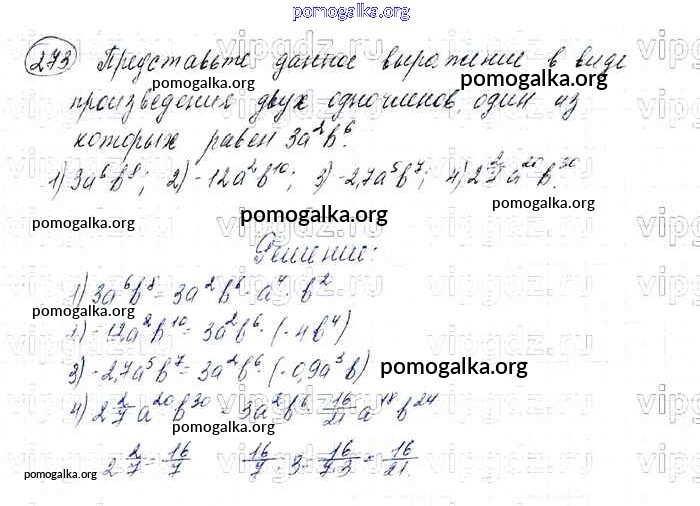 pomogalka.org
273 Представьте данное выражение в виде
pomogalka.org pomogalka.org
произведения двух одночленов, один из
которых равен 3a²b⁶.
1) 3a⁶b⁸; 2) -12a²b¹⁰; 3) -2,7a⁵b⁷; 4) 2 2/7 a²⁰b³⁰.
pomogalka.org pomogalka.org pomogalka.org
Решение:
1) 3a⁶b⁸ = 3a²b⁶ · a⁴ · b²
pomogalka.org
2) -12a²b¹⁰ = 3a²b⁶ · (-4b⁴)
3) -2,7a⁵b⁷ = 3a²b⁶ · (-0,9a³b)
pomogalka.org pomogalka.org
4) 2 2/7 a²⁰b³⁰ = 3a²b⁶ 16/21 a¹⁸b²⁴
pomogalka.org
2 2/7 = 16/7 16/7 : 3 = 16/7·3 = 16/21.
pomogalka.org